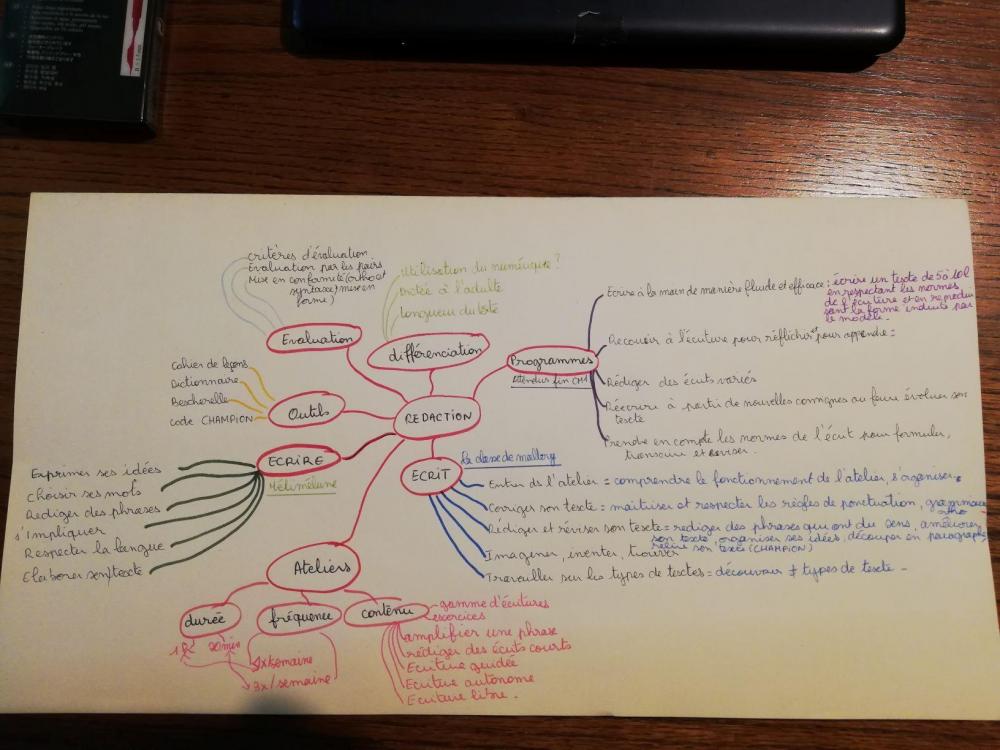 critères d'évaluation.
Evaluation par les pairs
Mise en conformité (ortho et
syntaxe) mise en
forme)
Evaluation
Utilisation du numérique?
Dictée à l'adulte
Longueur du texte
différenciation
Programmes
Attendus fin CM1
Ecrire à la main de manière fluide et efficace : écrire un texte de 5 à 10l
en respectant les normes
de l'écriture et en reprodui
sant la forme induite par
le modèle.
Recourir à l'écriture pour réfléchir et pour apprendre :
Rédiger des écrits variés
Réécrire à partir de nouvelles consignes ou faire évoluer son
texte
Prendre en compte les normes de l'écrit pour formuler,
transcrire et réviser.
Cahier de leçons
Dictionnaire
Bescherelle
code CHAMPION
Outils
REDACTION
ECRIRE
Mélimélune
Exprimer ses idées
Choisir ses mots
Rédiger des phrases
s'impliquer
Respecter la langue
Elaborer son texte
ECRIT
La classe de mallory
Entrer ds l'atelier = comprendre le fonctionnement de l'atelier, s'organiser.
Corriger son texte = maîtriser et respecter les règles de ponctuation, grammaire
ortho
Rédiger et réviser son texte = rediger des phrases qui ont du sens, améliorer
son texte, organiser ses idées, découper en paragraphes
relire son texte (CHAMPION)
Imaginer, inventer, trouver
Travailler sur les types de textes = découvrir ≠ types de texte -
Ateliers
durée
fréquence
contenu
1h
20min
1x/semaine
3x/semaine
gamme d'écritures
exercices
amplifier une phrase
rédiger des écrits courts
Ecriture guidée
Ecriture autonome
Ecriture libre.